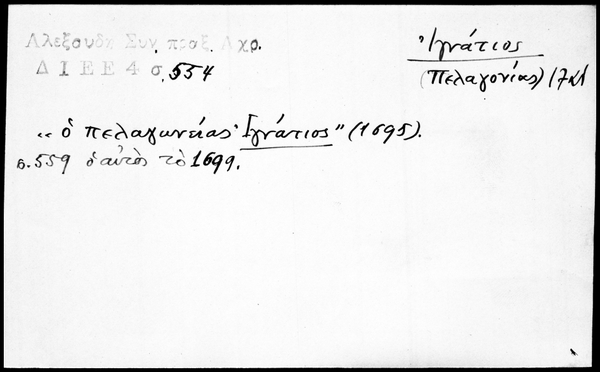 Αλεξουδη Συν. πραξ. Αχρ.
ΔΙΕΕ 4 σ. 554
Ἰγνάτιος
(Πελαγονίας)
"ὁ πελαγωνείας Ἰγνάτιος" (1695).
σ. 559 ὁ αὐτὸς τὸ 1699.